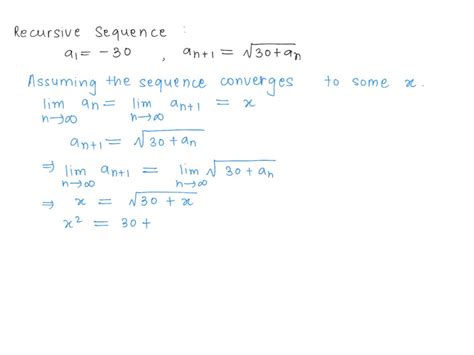 Recursive Sequence :
a₁ = -30 , aₙ₊₁ = √(30+aₙ)
Assuming the sequence converges to some x.
lim n→∞ aₙ = lim n→∞ aₙ₊₁ = x
aₙ₊₁ = √(30+aₙ)
⇒ lim n→∞ aₙ₊₁ = lim n→∞ √(30+aₙ)
⇒ x = √(30+x)
x² = 30+